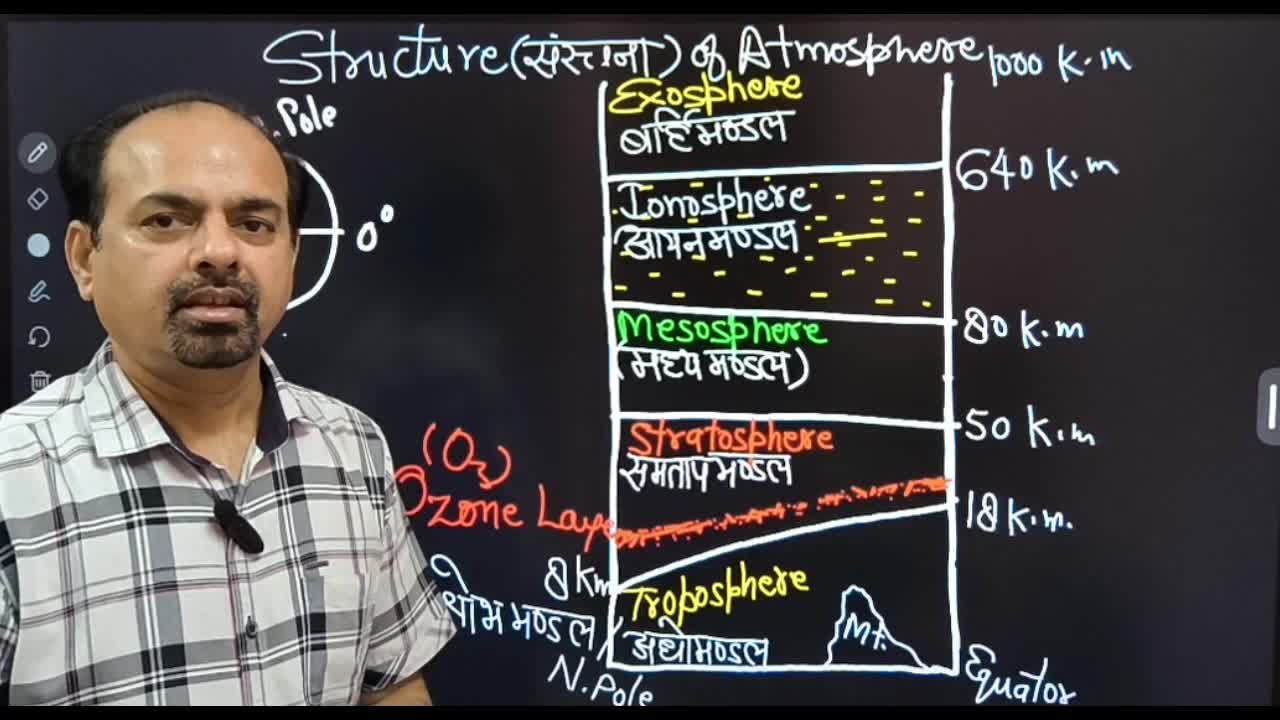 Structure (संरचना) of Atmosphere
1000 K.m
Exosphere
बर्हिमण्डल
. Pole
640 K.m
Ionosphere
आयनमण्डल
0°
80 K.m
Mesosphere
(मध्य मण्डल)
50 K.m
Stratosphere
समताप मण्डल
(O3)
Ozone Layer
18 K.m.
8 Km
Troposphere
क्षोभ मण्डल /
अधोमण्डल
Mt.
N. Pole
Equator